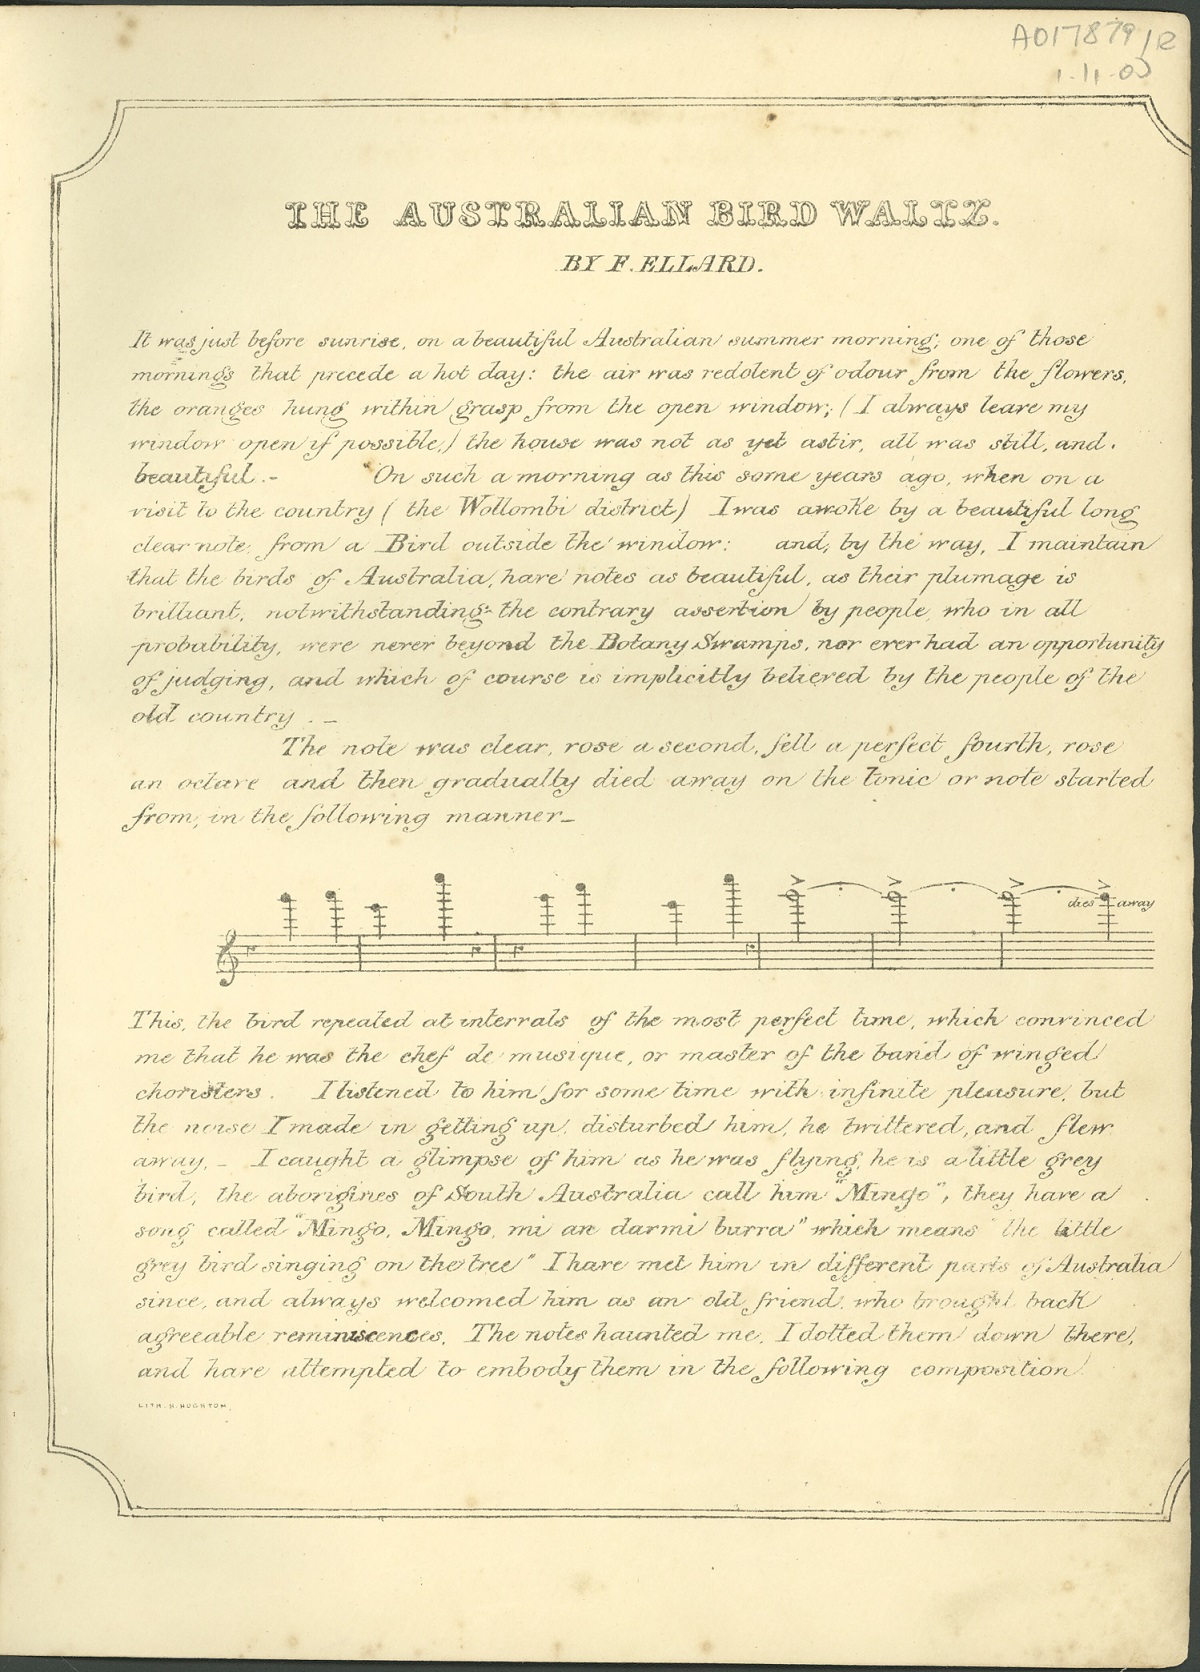 A017879/R
1-11-00
THE AUSTRALIAN BIRD WALTZ.
BY F. ELLARD.
It was just before sunrise, on a beautiful Australian summer morning; one of those
mornings that precede a hot day: the air was redolent of odour from the flowers,
the oranges hung within grasp from the open window; (I always leave my
window open if possible,) the house was not as yet astir, all was still, and
beautiful.- "On such a morning as this some years ago, when on a
visit to the country (the Wollombi district) I was awoke by a beautiful long
clear note, from a Bird outside the window: and, by the way, I maintain
that the birds of Australia, have notes as beautiful, as their plumage is
brilliant, notwithstanding the contrary assertion by people, who in all
probability, were never beyond the Botany Swamps, nor ever had an opportunity
of judging, and which of course is implicitly believed by the people of the
old country. -
The note was clear, rose a second, fell a perfect fourth, rose
an octave and then gradually died away on the tonic or note started
from, in the following manner-
dies away
This, the bird repealed at intervals of the most perfect time, which convinced
me that he was the chef de musique, or master of the band of winged
choristers. I listened to him for some time with infinite pleasure, but
the noise I made in getting up, disturbed him, he twittered, and flew
away, - I caught a glimpse of him as he was flying, he is a little grey
bird, the aborigines of South Australia call him "Mingo", they have a
song called "Mingo, Mingo, mi an darmi burra" which means the little
grey bird singing on the tree" I have met him in different parts of Australia
since, and always welcomed him as an old friend, who brought back
agreeable reminiscences. The notes haunted me, I dotted them down there,
and have attempted to embody them in the following composition
LITH. N. HUGHTON.